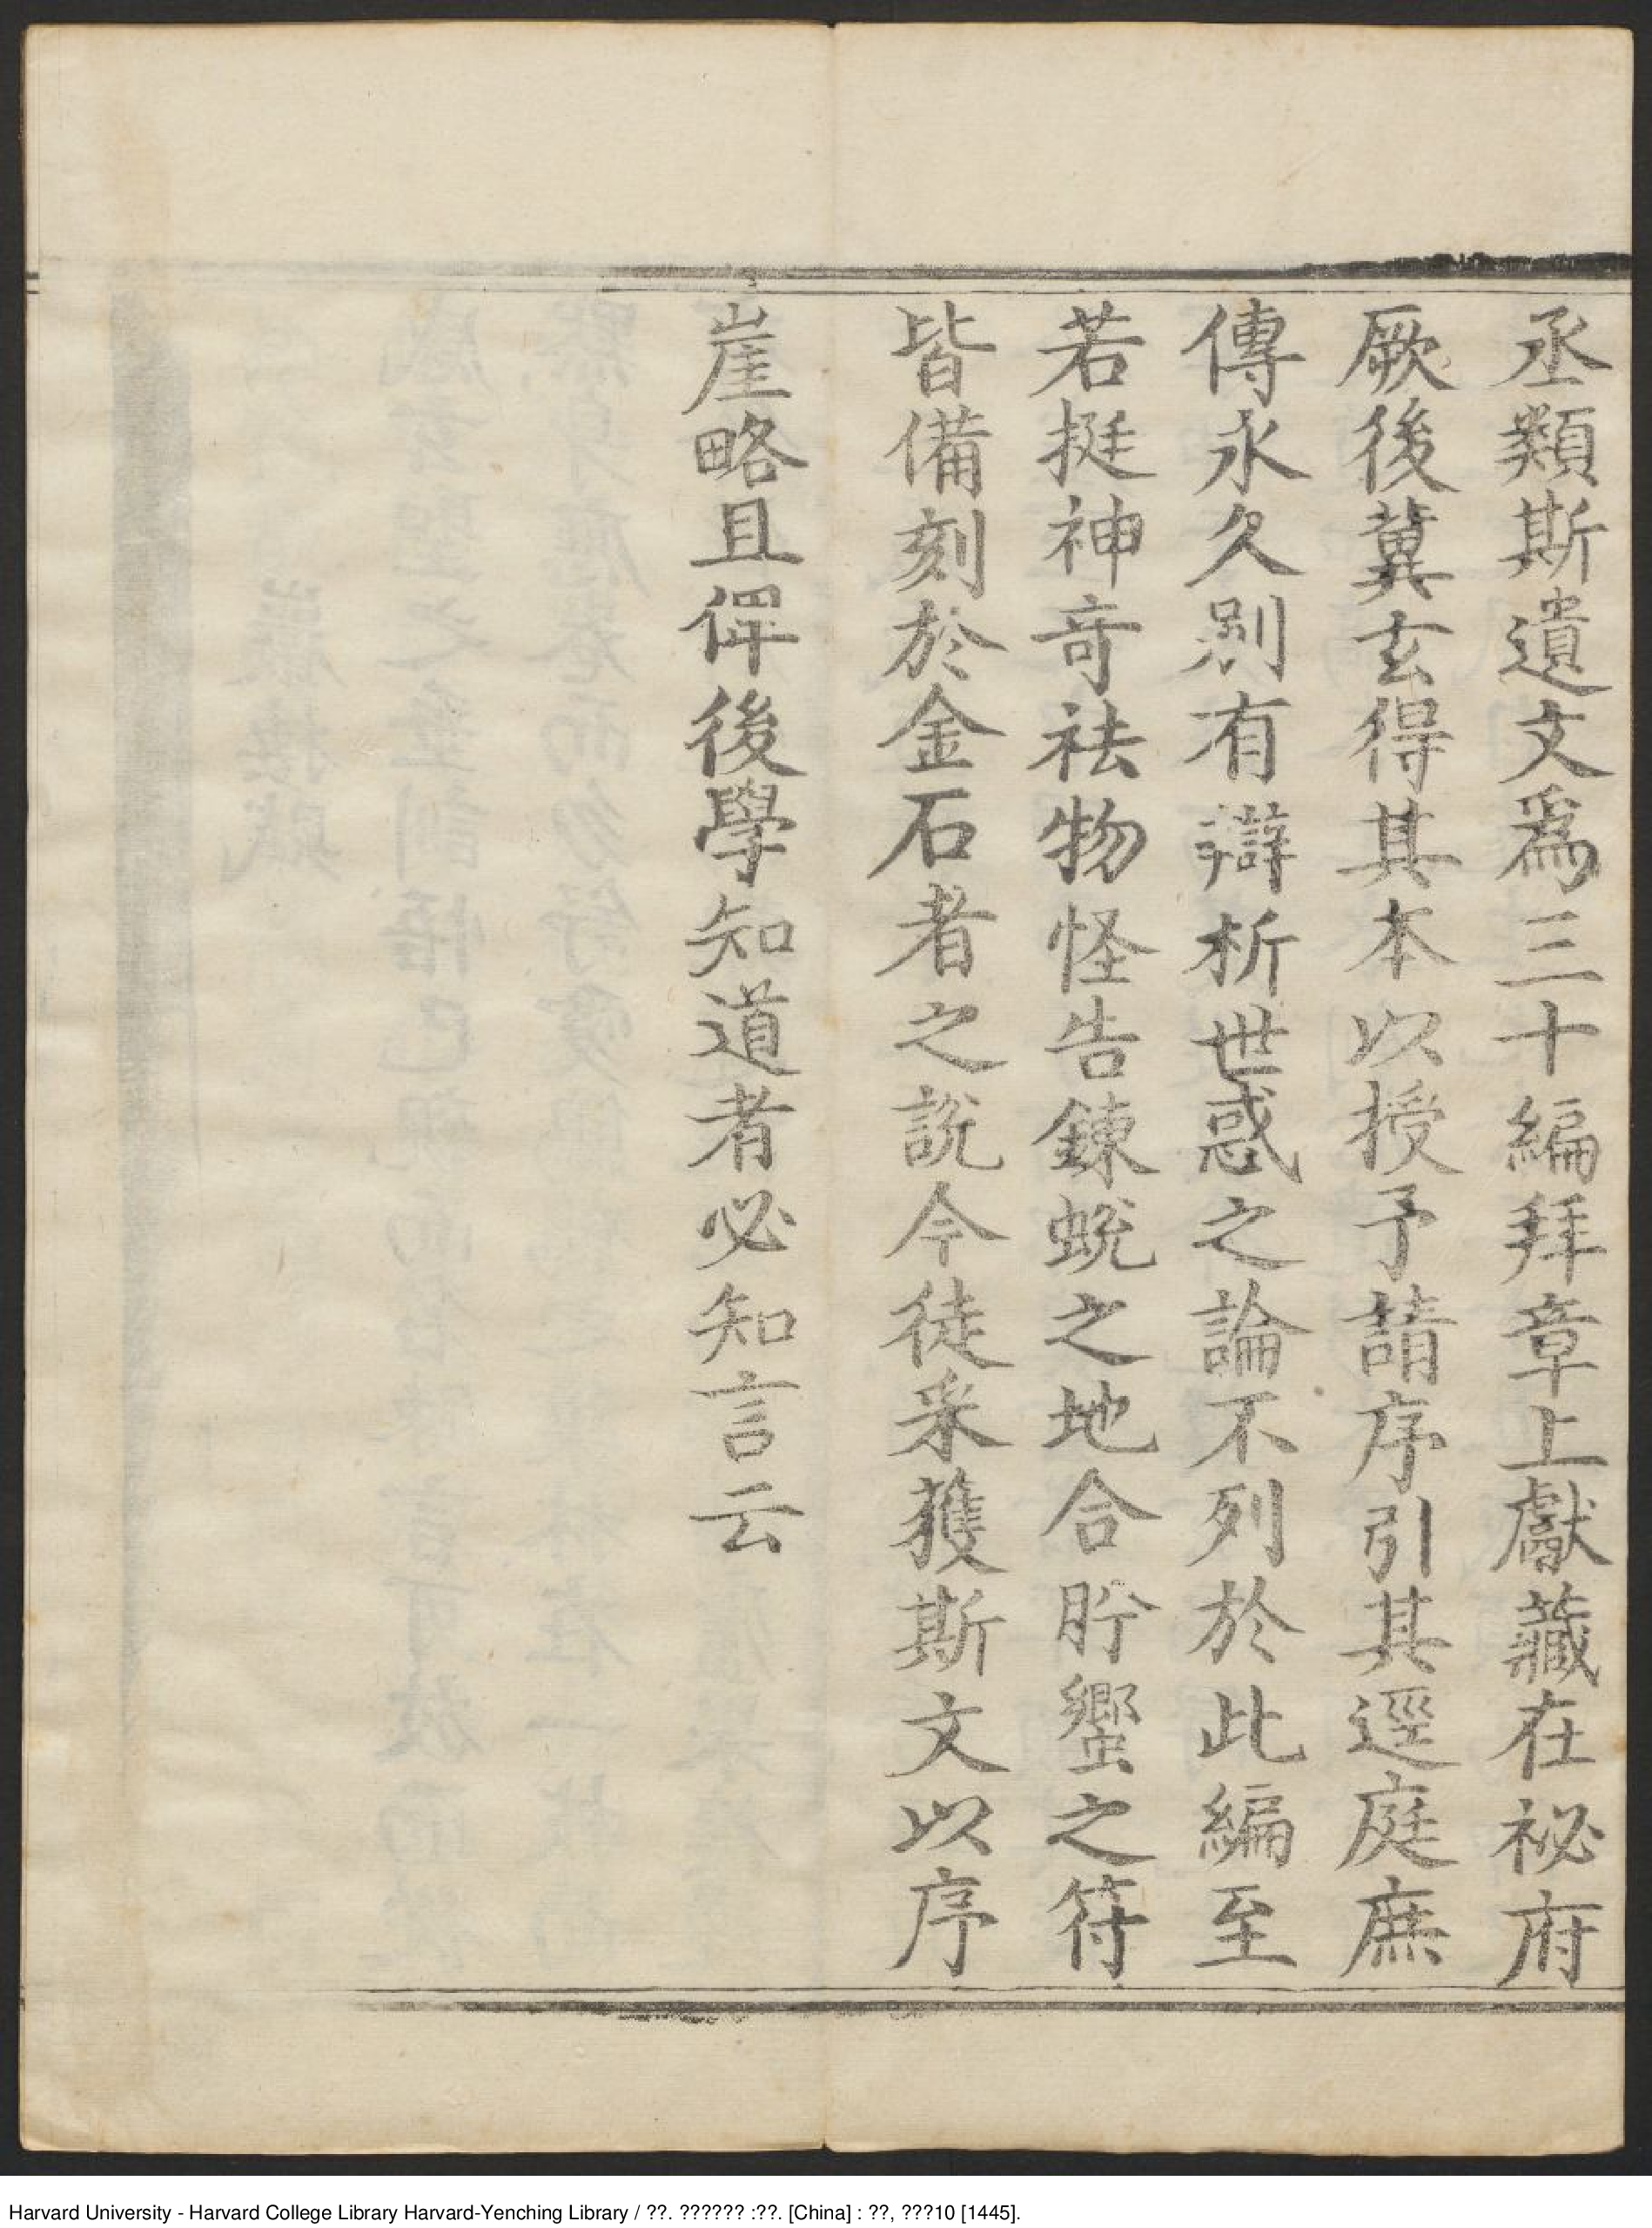 丞類斯遺文爲三十編拜章上獻藏在祕府
厥後冀玄得其本以授予請序引其逕庭庶
傳永久别有辯析世惑之論不列於此編至
若挺神奇祛物怪告鍊蛻之地合肸蠁之符
皆備刻於金石者之說今徒采獲斯文以序
崖略且俾後學知道者必知言云
Harvard University - Harvard College Library Harvard-Yenching Library / ??. ?????? :??. [China] : ??, ???10 [1445].